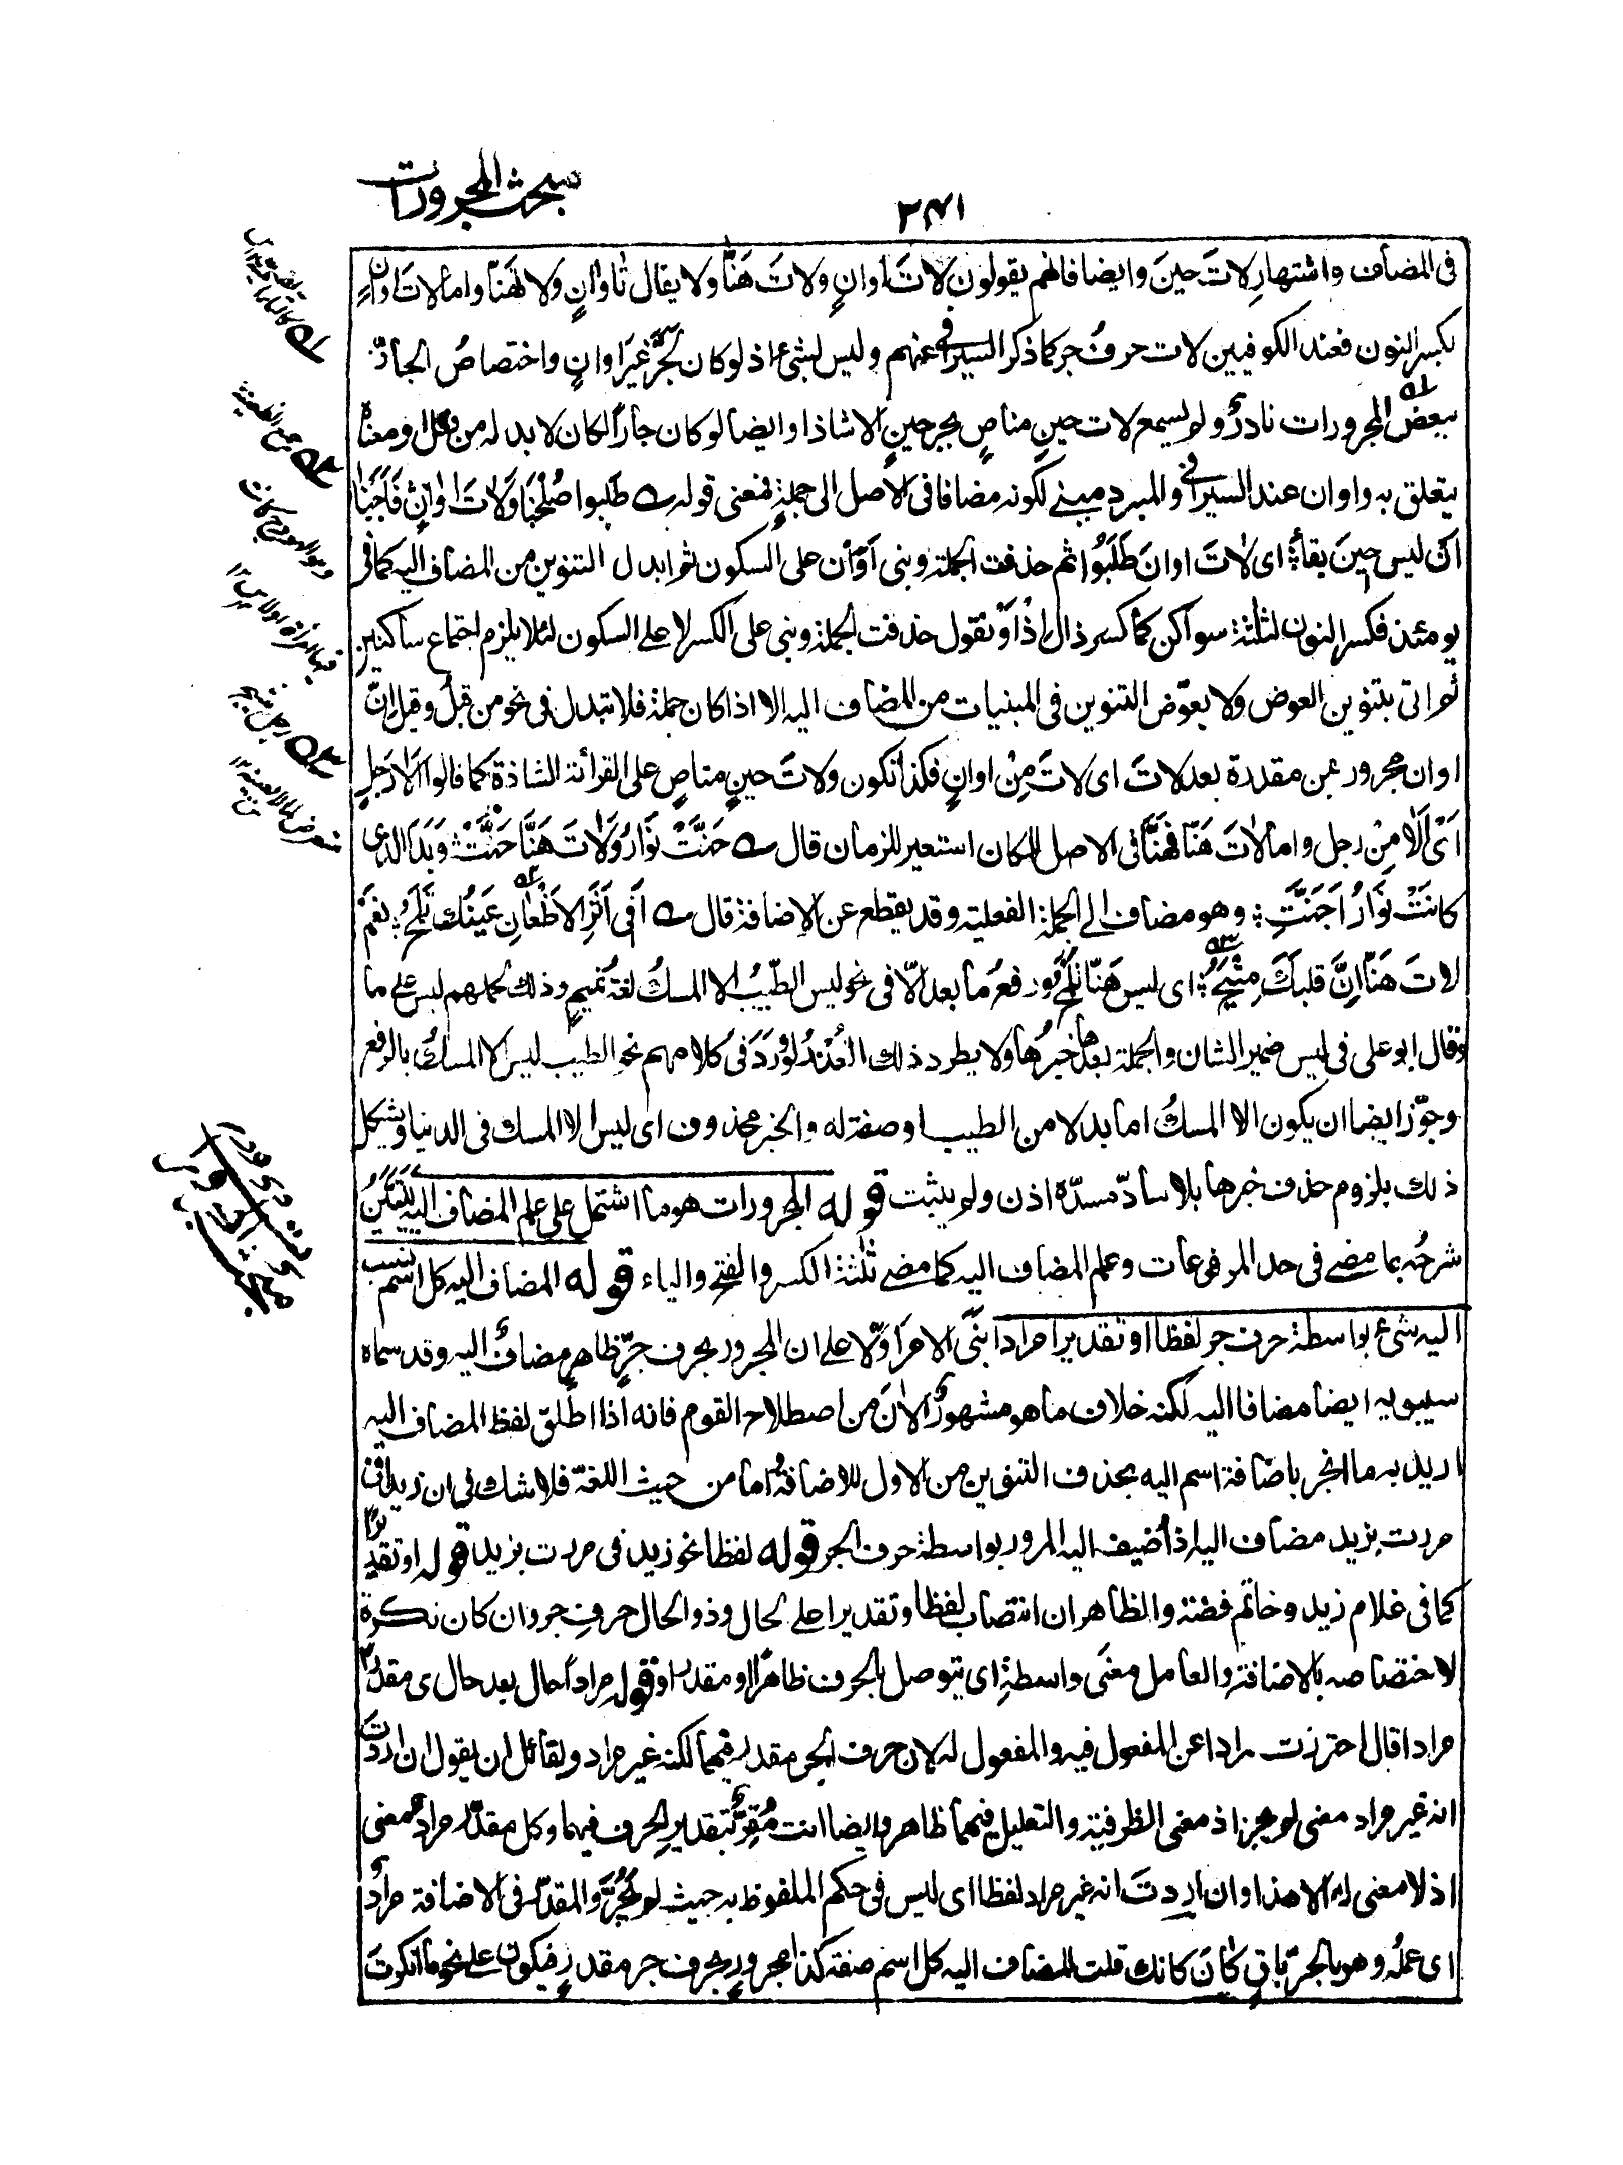 مبحث المجرورات
٢٤١
فى المضاف واشتهارِ لاتَ حينَ وايضا فانهم يقولون لاتَ اوانٍ ولاتَ هَنّا ولا يقال تاوانٍ ولا تهَنّا واما لاتَ اوانٍ
بكسر النون فعند الكوفيين لات حرفُ جر كما ذكر السيرافى عنهم وليس بشئ اذ لو كان لجُرَّ غيرَ اوانٍ واختصاصُ الجارّ
ببعض المجرورات نادرٌ ولم يسمع لات حينِ مناصٍ بجر حينٍ الا شاذا وايضا لو كان جارّا لكان لا بد له من فعل او معناه
يتعلق به واوان عند السيرافى والمبرد مبنى لكونه مضافا فى الاصل الى جملةٍ فمعنى قوله ؎ طَلَبوا صُلحَنَا وَلَاتَ اوانٍ فَاَجَبْنَا
ان ليس حينَ بقاءٍ اى لاتَ اوانَ طَلَبُوا ثم حذفت الجملة وبنى اَوَان على السكون ثم ابدل التنوين من المضاف اليه كما فى
يومئذ فكسر النون لثلثة سواكن كما كسر ذال اِذْ او نقول حذفت الجملة وبنى على الكسر لا على السكون لئلا يلزم اجتماع ساكنين
ثم اتى بتنوين العوض ولا يعوّض التنوين فى المبنيات من المضاف اليه الا اذا كان جملة فلا تبدل فى نحو من قبلُ وقيل انّ
اوان مجرور بمن مقدرة بعد لات اى لاتَ مِنْ اوانٍ فكذا تكون ولاتَ حينِ مناصٍ على القرائة الشاذة كما قالوا اَلَا رَجلٍ
اَىْ اَلَا مِنْ رجل واما لاتَ هَنّا فهَنَّا فى الاصل للمكان استعير للزمان قال ؎ حَنَّتْ نَوَارُ وَلَاتَ هَنَّا حَنَّتْ وَبَدَا الذى
كانَتْ نَوَارُ اَجَنَّتِ وهو مضاف الى الجملة الفعلية وقد يقطع عن الاضافة قال ؎ اَفِى اَثَرِ الاَظْعَانِ عَينُك تَلمَحُ نعَمْ
لاتَ هَنّا اِنَّ قلبَكَ مِتْيَحُ اى ليس هَنّا تَلمَحُ ورفعُ ما بعد الّا فى نحو ليس الطّيبُ الا المسكُ لغةُ تميمٍ وذلك لحملهم ليس على ما
وقال ابو على فى ليس ضمير الشان والجملة بعدها خبرُها ولا يطرد ذلك العذرُ لورودَ فى كلامهم نحو الطيب ليس الا المسكُ بالرفع
وجوّز ايضا ان يكون الا المسكُ اما بدلا من الطيب او صفة له والخبر محذوف اى ليس الا المسك فى الدنيا ويشكل
ذلك بلزوم حذف خبرها بلا سادّ مسدّه اذن ولم يثبت قوله المجرورات هو ما اشتمل على علم المضاف اليه يتبيّنُ
شرحُه بما مضى فى حد المرفوعات وعلم المضاف اليه كما مضى ثلثة الكسر والفتح والياء قوله المضاف اليه كل اسم نسب
اليه شئ بواسطة حرف جر لفظا او تقديرا مرادا بَنَى الامر اَوّلا على ان المجرور بحرف جرٍّ ظاهرٍ مضافٌ اليه وقد سماه
سيبويه ايضا مضافا اليه لكنه خلاف ما هو مشهورٌ الاٰنَ من اصطلاح القوم فانه اذا اطلق لفظ المضاف اليه
اريد به ما انجر باضافة اسم اليه بحذف التنوين من الاول للاضافة اما من حيث اللغة فلا شك فى ان زيدا فى
مررت بزيد مضاف اليه اذ اُضيف اليه المرور بواسطة حرف الجر قوله لفظا نحو زيد فى مررت بزيد قوله او تقديرا
كما فى غلام زيد وخاتم فضة والظاهر ان انتصاب لفظا وتقديرا على الحال وذو الحال حرفِ جر وان كان نكرة
لاختصاصه بالاضافة والعامل معنَى واسطةِ اى يتوصل بالحرف ظاهرًا او مقدرا وقوله مراداً حال بعد حال اى مقدرا
مرادا قال احترزت بمرادا عن المفعول فيه والمفعول له لان حرف الجر مقدر فيهما لكنه غير مراد ولقائل ان يقول ان اردتَ
انه غير مراد معنى لم يجز اذ معنى الظرفية والتعليل فيهما ظاهر وايضا انت مُقِرٌّ بتقديرِ الحرف فيهما وكل مقدّر مرادٌ معنى
اذ لا معنى له الا هذا وان اردتَ انه غير مراد لفظا اى ليس فى حكم الملفوظ به حيث لم يَجُرَّ والمقدّر فى الاضافة مرادٌ
اى عملُه وهو الجرّ باقٍ كانَ كانك قلت المضاف اليه كل اسم صفته كذا مجرورٍ بحرف جر مقدرٍ فيكون على نحو ما انكرتَ